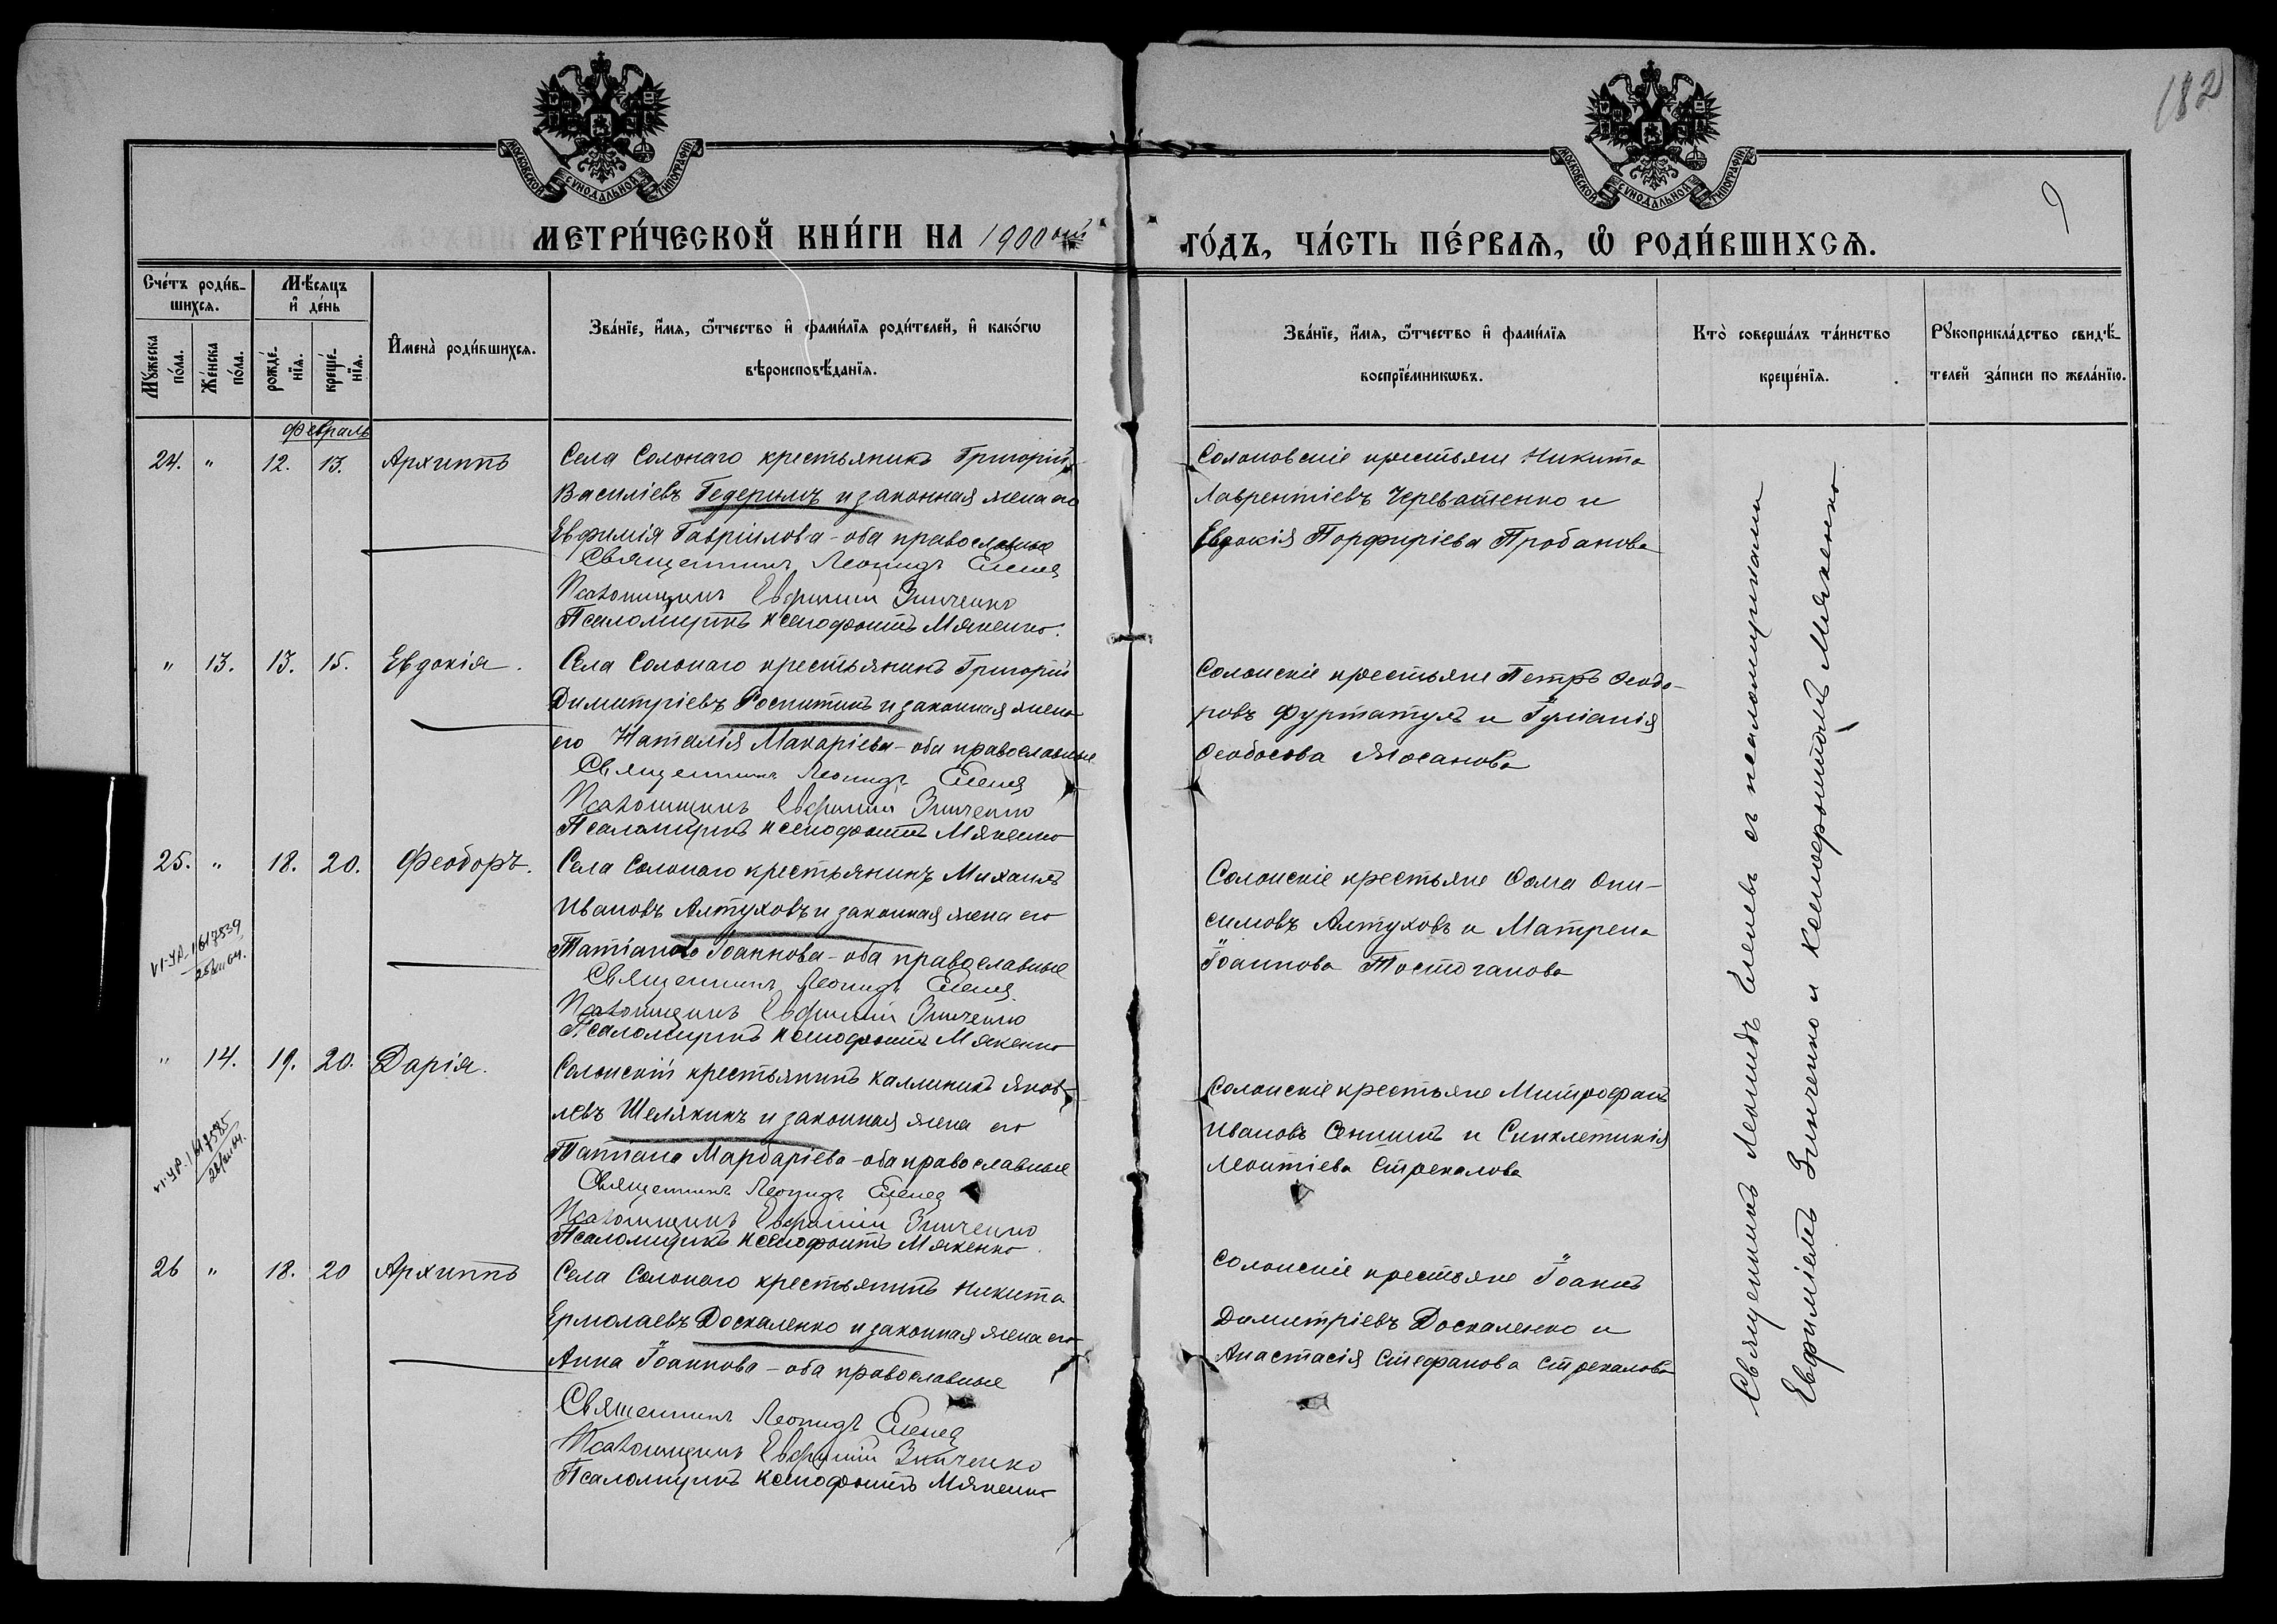 182
9
МОСКОВСКОЙ СУНОДАЛЬНОЙ ТИПОГРАФІИ
МОСКОВСКОЙ СУНОДАЛЬНОЙ ТИПОГРАФІИ
МЕТРИ́ЧЕСКОЙ КНИ́ГИ НА 1900ый
ГО́ДЪ, ЧА́СТЬ ПЕ́РВАѦ, Ѽ РОДИ́ВШИХСѦ.
Сче́тъ роди́в-
шихсѧ.
Мѣ́сѧцъ
и҆ де́нь
Мꙋ́жеска
по́ла.
Же́нска
по́ла.
рожде́-
нїѧ.
креще́-
нїѧ.
И҆мена̀ роди́вшихсѧ.
Зва́нїе, и҆́мѧ, ѻ҆́тчество и҆ фами́лїѧ роди́телей, и҆ како́гѡ
вѣроисповѣ́данїѧ.
Зва́нїе, и҆́мѧ, ѻ҆́тчество и҆ фами́лїѧ
воспрїе́мникѡвъ.
Кто̀ соверша́лъ та́инство
креще́нїѧ.
Рꙋкоприкла́дство свидѣ́-
телей за́писи по жела́нїю.
Февраль
24. " 12. 13. Архиппъ
Села Солонаго крестьянинъ Григорій
Василіевъ и законная жена его
Евфимія Гавріилова - оба православные
Священникъ Леонидъ Еленев
Псаломщикъ Евфимій Зинченко
Псаломщикъ Ксенофонтъ Мякенко.
Солоновскіе крестьяне Никита
Лаврентіевъ Череватенко и
Евдокія Порфиріева Пробанова
" 13. 13. 15. Евдокія.
Села Солонаго крестьянинъ Григорій
Димитріевъ Роспитинъ и законная жена
его Наталія Макаріева - оба православные
Священникъ Леонидъ Еленев
Псаломщикъ Евфимій Зинченко
Псаломщикъ Ксенофонтъ Мякенко
Солонскіе крестьяне Петръ Ѳеодо-
ровъ Фуртатуль и Іуліанія
Ѳеодосова
25. " 18. 20. Феодоръ.
Села Солонаго крестьянинъ Михаилъ
Ивановъ Алтуховъ и законная жена его
Татіана Іоаннова - оба православные
Священникъ Леонидъ Еленев
Псаломщикъ Евфимій Зинченко
Псаломщикъ Ксенофонтъ Мякенко
VI-УР-1 617539
Солонскіе крестьяне Ѳома Они-
симовъ Алтуховъ и Матрена
Іоаннова Толстоганова
" 14. 19. 20. Дарія.
Солонскій крестьянинъ Каллиникъ Яков-
левъ Шелякинъ и законная жена его
Татіана Мардаріева - оба православные
Священникъ Леонидъ Еленев
Псаломщикъ Евфимій Зинченко
Псаломщикъ Ксенофонтъ Мякенко.
VI-УР-1 617585
Солонскіе крестьяне Митрофанъ
Ивановъ Сенинъ и Синклетикія
Леонтіева Стрекалова
26 " 18. 20 Архиппъ
Села Солонаго крестьянинъ Никита
Ермолаевъ Доскаленко и законная жена его
Анна Іоаннова - оба православные
Священникъ Леонидъ Еленев
Псаломщикъ Евфимій Зинченко
Псаломщикъ Ксенофонтъ Мякенко
Солонскіе крестьяне Іоаннъ
Димитріевъ Доскаленко и
Анастасія Стефанова Стрекалова
Священникъ Леонидъ Еленевъ съ псаломщиками
Евфиміемъ Зинченко и Ксенофонтомъ Мякенко